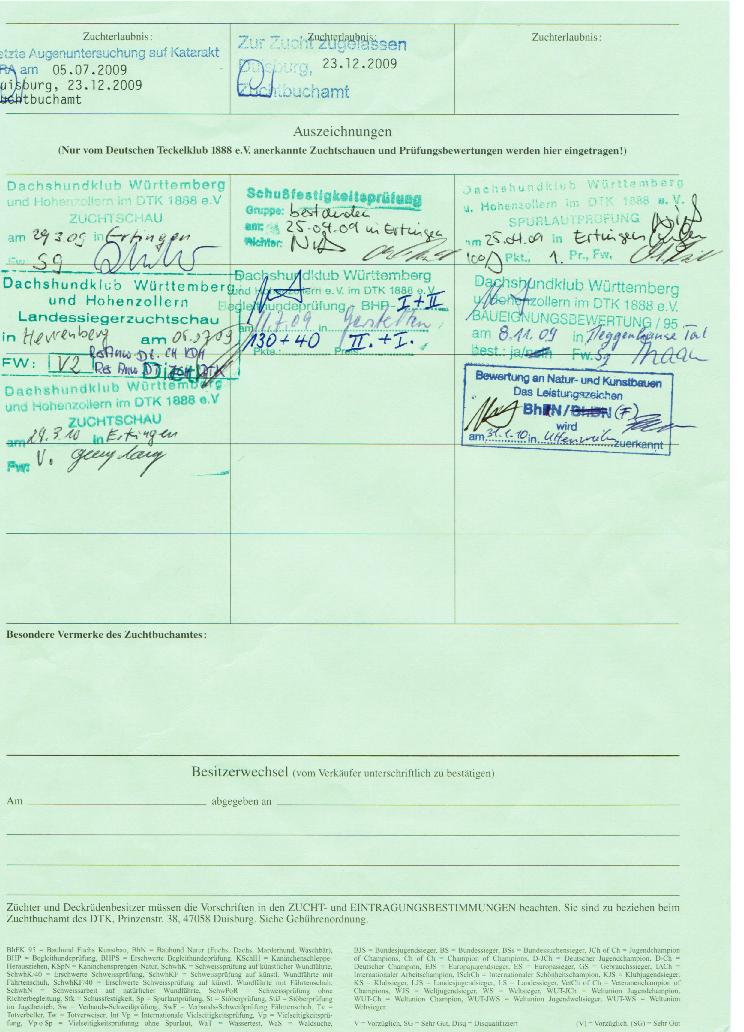 Zuchterlaubnis:
etzte Augenuntersuchung auf Katarakt
RA am 05.07.2009
uisburg, 23.12.2009
uchtbuchamt
Zuchterlaubnis:
Zur Zucht zugelassen
Duisburg, 23.12.2009
Zuchtbuchamt
Zuchterlaubnis:
Auszeichnungen
(Nur vom Deutschen Teckelklub 1888 e.V. anerkannte Zuchtschauen und Prüfungsbewertungen werden hier eingetragen!)
Dachshundklub Württemberg
und Hohenzollern im DTK 1888 e.V
ZUCHTSCHAU
am 29.3.09 in Ertingen
Fw: Sg
Schußfestigkeitsprüfung
Gruppe: bestanden
am: 25-04-09 in Ertingen
Richter:
Dachshundklub Württemberg
u. Hohenzollern im DTK 1888 e. V.
SPURLAUTPRÜFUNG
am 25.04.09 in Ertingen
100 Pkt., 1. Pr., Fw.
Dachshundklub Württemberg
und Hohenzollern
Landessiegerzuchtschau
in Herrenberg am 05.07.09
FW: V2
Dachshundklub Württemberg
und Hohenzollern e.V. im DTK 1888 e.V.
Begleithundeprüfung BHP- I+II
7.09 in
130+40 II.+I.
Pkte.: Pr
Dachshundklub Württemberg
u. Hohenzollern im DTK 1888 e.V.
BAUEIGNUNGSBEWERTUNG / 95
am 8.11.09 in
best.: ja/nein Fw. Sg
Dachshundklub Württemberg
und Hohenzollern im DTK 1888 e.V
ZUCHTSCHAU
am 29.3.10 in Ertingen
Fw: V.
Bewertung an Natur- und Kunstbauen
Das Leistungszeichen
BhFN/BhDN (F)
wird
am 31.1.10 in Uttenweiler zuerkannt
Besondere Vermerke des Zuchtbuchamtes:
Besitzerwechsel (vom Verkäufer unterschriftlich zu bestätigen)
Am abgegeben an
Züchter und Deckrüdenbesitzer müssen die Vorschriften in den ZUCHT- und EINTRAGUNGSBESTIMMUNGEN beachten. Sie sind zu beziehen beim
Zuchtbuchamt des DTK, Prinzenstr. 38, 47058 Duisburg. Siehe Gebührenordnung.
BhFK 95 = Bauhund Fuchs Kunstbau, BhN = Bauhund Natur (Fuchs, Dachs, Marderhund, Waschbär),
BHP = Begleithundeprüfung, BHPS = Erschwerte Begleithundeprüfung, KSchlH = Kaninchenschleppe-
Herausziehen, KSpN = Kaninchensprengen-Natur, SchwhK = Schweissprüfung auf künstlicher Wundfährte,
SchwhK/40 = Erschwerte Schweissprüfung, SchwhKF = Schweissprüfung auf künstl. Wundfährte mit
Fährtenschuh, SchwhKF/40 = Erschwerte Schweissprüfung auf künstl. Wundfährte mit Fährtenschuh,
SchwhN = Schweissarbeit auf natürlicher Wundfährte, SchwPoR = Schweissprüfung ohne
Richterbegleitung, Sfk = Schussfestigkeit, Sp = Spurlautprüfung, St = Stöberprüfung, StiJ = Stöberprüfung
im Jagdbetrieb, Sw = Verbands-Schweißprüfung, SwF = Verbands-Schweißprüfung Fährtenschuh, Tv =
Totverbeller, Tw = Totverweiser, Int Vp = Internationale Vielseitigkeitsprüfung, Vp = Vielseitigkeitsprü-
fung, VpoSp = Vielseitigkeitsprüfung ohne Spurlaut, WaT = Wassertest, WaS = Waldsuche,
BJS = Bundesjugendsieger, BS = Bundessieger, BSs = Bundessuchensieger, JCh of Ch = Jugendchampion
of Champions, Ch of Ch = Champion of Champions, D-JCh = Deutscher Jugendchampion, D-Ch =
Deutscher Champion, EJS = Europajugendsieger, ES = Europasieger, GS = Gebrauchssieger, IACh =
Internationaler Arbeitschampion, ISchCh = Internationaler Schönheitschampion, KJS = Klubjugendsieger,
KS = Klubsieger, LJS = Landesjugendsieger, LS = Landessieger, VetCh of Ch = Veteranenchampion of
Champions, WJS = Weltjugendsieger, WS = Weltsieger, WUT-JCh = Weltunion Jugendchampion,
WUT-Ch = Weltunion Champion, WUT-JWS = Weltunion Jugendweltsieger, WUT-WS = Weltunion
Weltsieger.
V = Vorzüglich, SG = Sehr Gut, Disq = Disqualifiziert (V) = Vorzüglich, (SG) = Sehr Gut